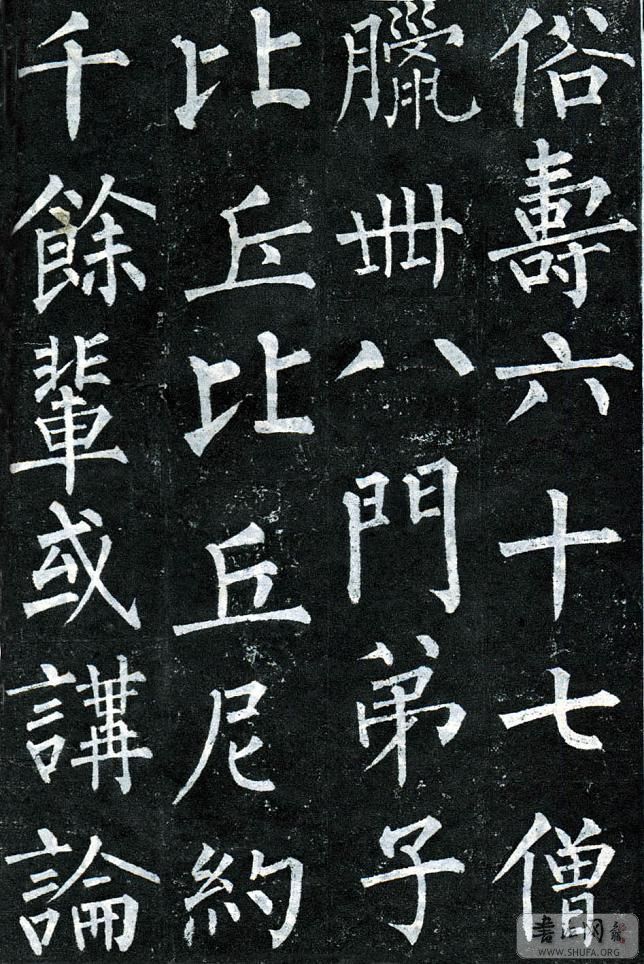 俗壽六十七僧
臘卌八門弟子
比丘比丘尼約
千餘輩或講論
書江网
WWW.SHUFA.ORG